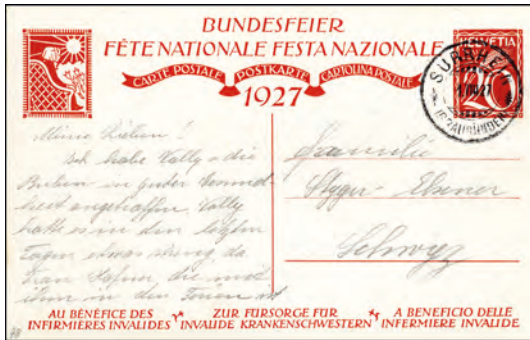 BUNDESFEIER
FÊTE NATIONALE FESTA NAZIONALE
CARTE POSTALE POSTKARTE CARTOLINA POSTALE
1927
HELVETIA
20
SURRHEIN
(GRAUBÜNDEN)
Meine Lieben!
Ich habe Vally & die
Buben in guter
heit angetroffen. Vally
hatte es in den letzten
Tagen etwas streng, da
Frau die
in den Ferien ist
Familie
Elsener
Schwyz
AU BÉNÉFICE DES
INFIRMIÈRES INVALIDES
ZUR FÜRSORGE FÜR
INVALIDE KRANKENSCHWESTERN
A BENEFICIO DELLE
INFERMIERE INVALIDE